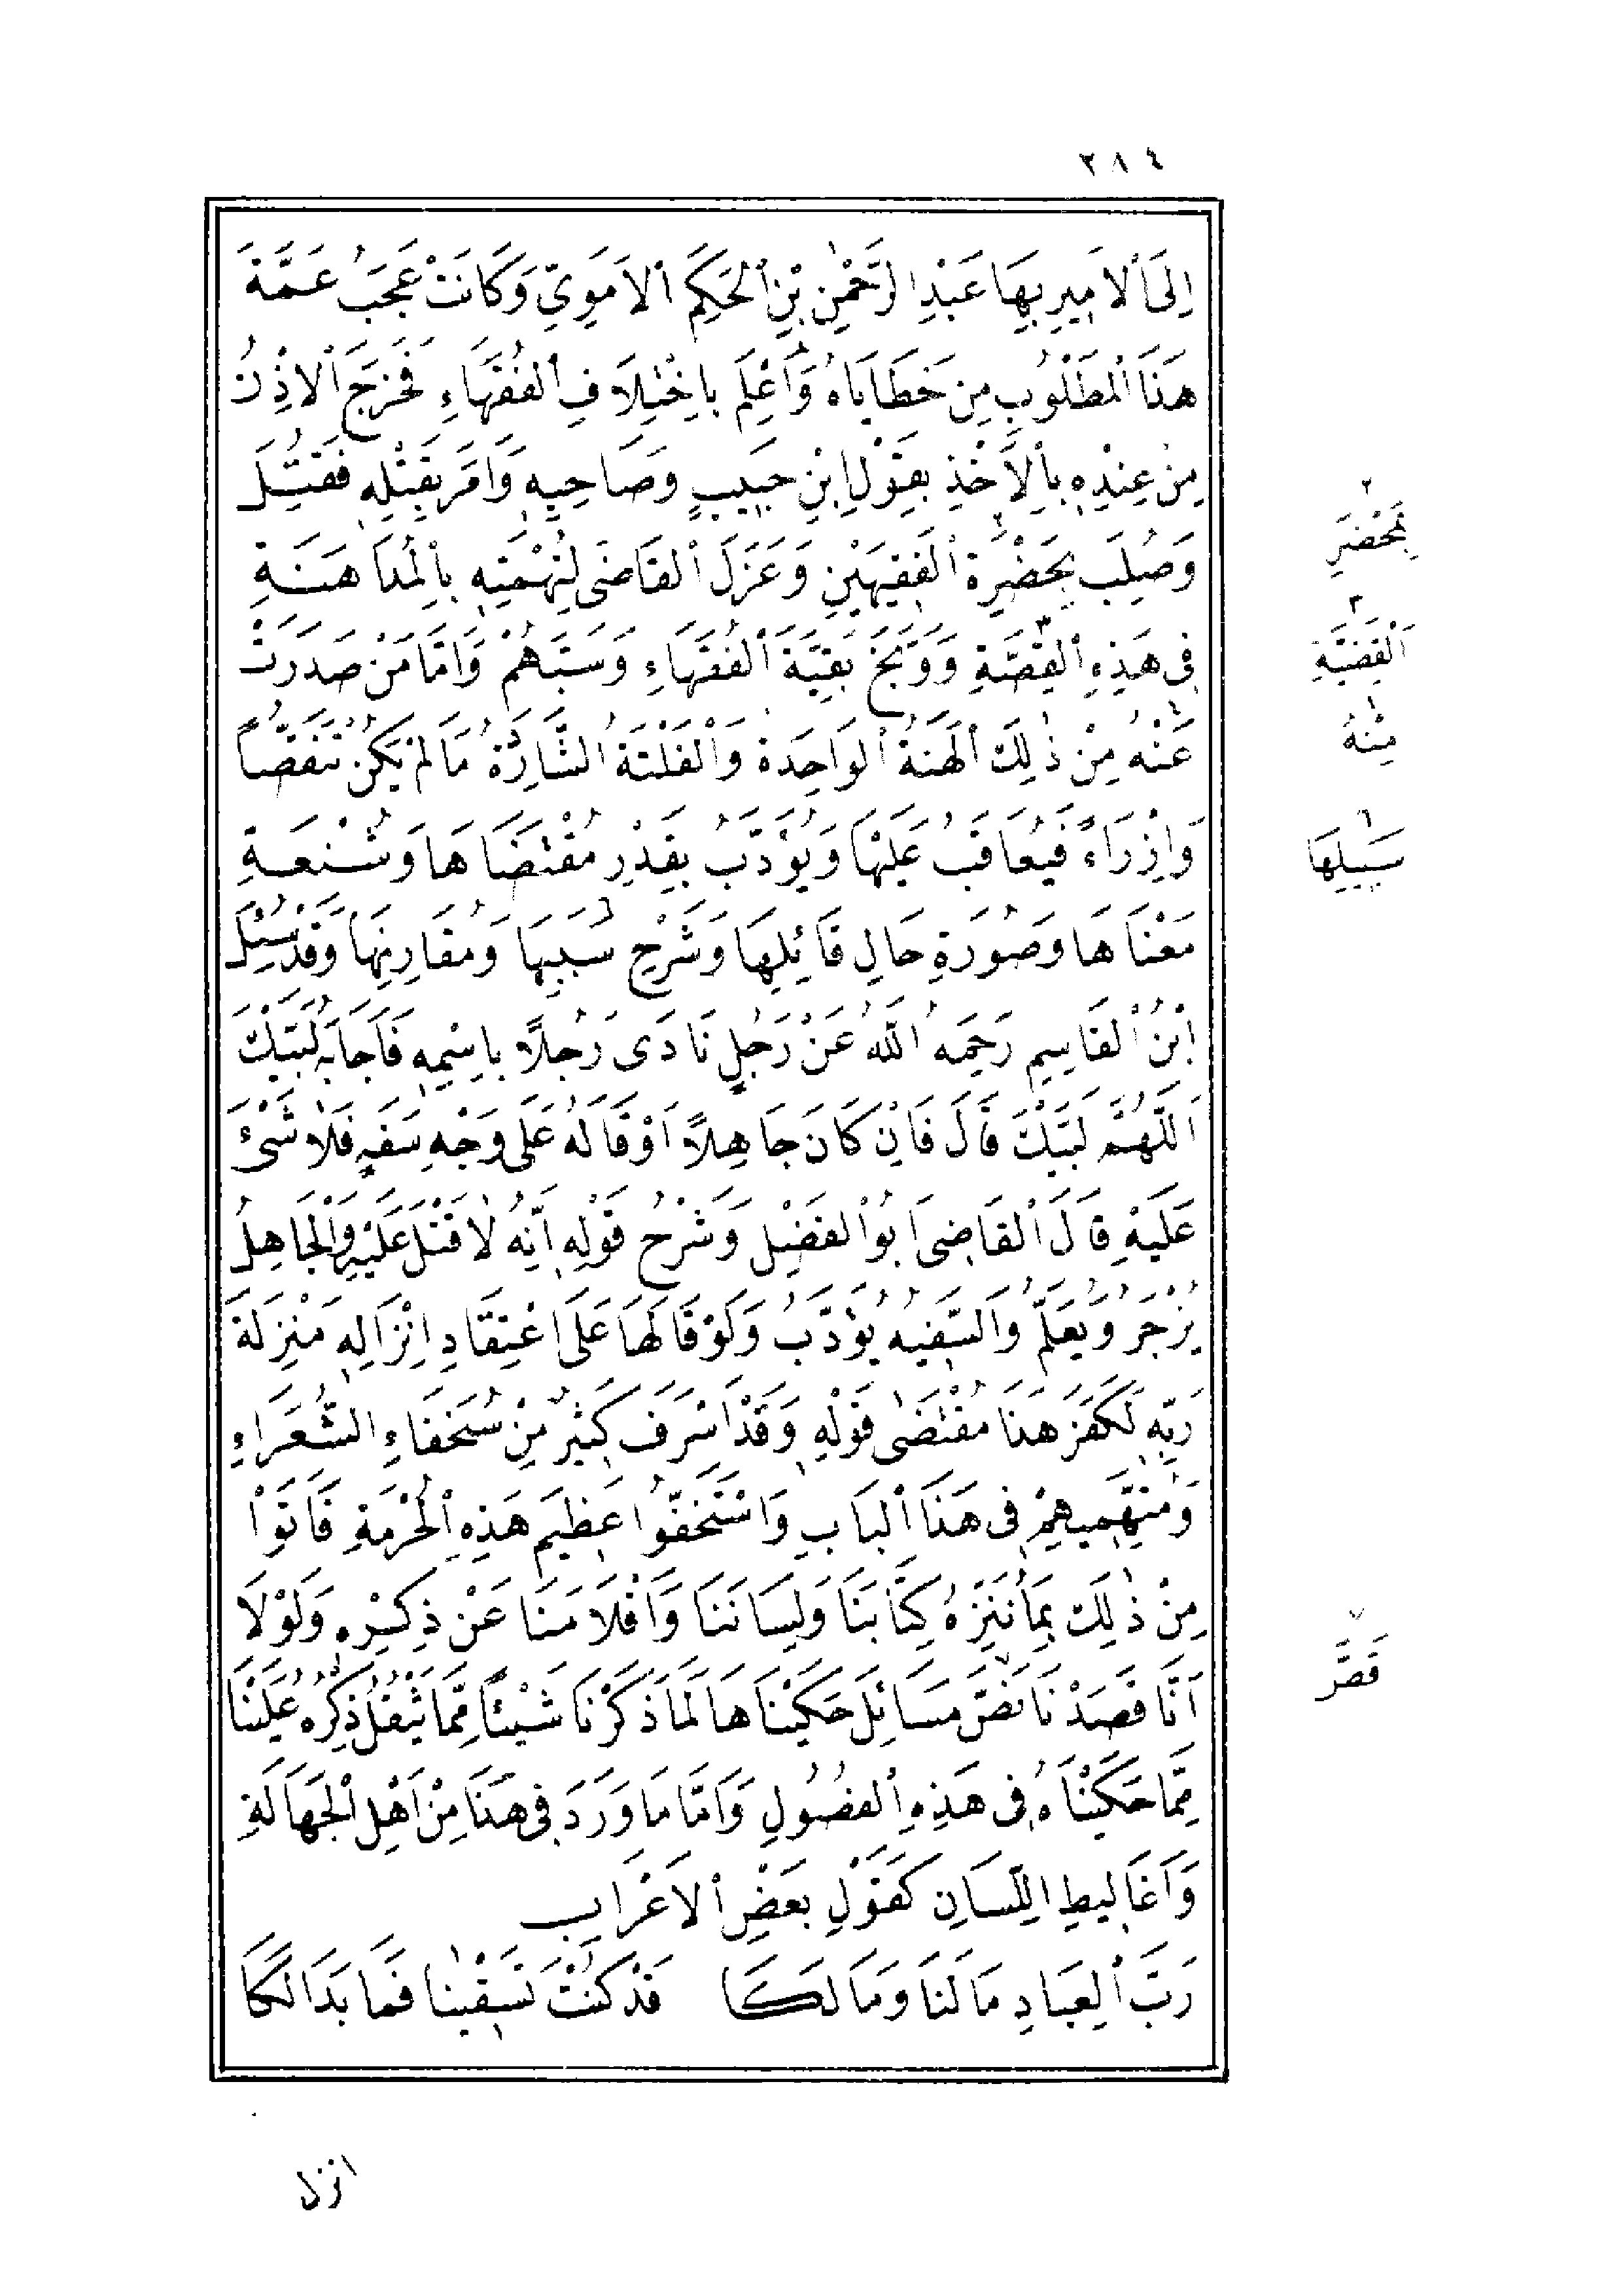 ٢٨٤
اِلَى ٱلْاَمِيرِ بِهَا عَبْدِ الرَّحْمٰنِ بْنِ ٱلْحَكَمِ ٱلْاُمَوِيِّ وَكَانَتْ عَجَبُ عَمَّةَ
هَذَا ٱلْمَطْلُوبِ مِنْ حَظَايَاهُ وَاُعْلِمَ بِاخْتِلَافِ ٱلْفُقَهَاءِ فَخَرَجَ ٱلْاِذْنُ
مِنْ عِنْدِهِ بِٱلْاَخْذِ بِقَوْلِ ابْنِ حَبِيبٍ وَصَاحِبِهِ وَاَمَرَ بِقَتْلِهِ فَقُتِلَ
وَصُلِبَ بِحَضْرَةِ ٱلْفَقِيهَيْنِ وَعَزَلَ ٱلْقَاضِىَ لِتُهْمَتِهِ بِٱلْمُدَاهَنَةِ
فِى هَذِهِ ٱلْقِصَّةِ وَوَبَّخَ بَقِيَّةَ ٱلْفُقَهَاءِ وَسَبَّهُمْ وَاَمَّا مَنْ صَدَرَتْ
عَنْهُ مِنْ ذٰلِكَ ٱلْهَنَةُ ٱلْوَاحِدَةُ وَٱلْفَلْتَةُ الشَّارِدَةُ مَالَمْ يَكُنْ تَنَقُّصًا
وَاِزْرَاءً فَيُعَاقَبُ عَلَيْهَا وَيُؤَدَّبُ بِقَدْرِ مُقْتَضَاهَا وَشُنْعَةِ
مَعْنَاهَا وَصُورَةِ حَالِ قَائِلِهَا وَشَرْحِ سَبَبِهَا وَمُقَارِنِهَا وَقَدْ سُئِلَ
ابْنُ ٱلْقَاسِمِ رَحِمَهُ اللّٰهُ عَنْ رَجُلٍ نَادَى رَجُلًا بِاسْمِهِ فَاَجَابَهُ لَبَّيْكَ
اَللّٰهُمَّ لَبَّيْكَ قَالَ فَاِنْ كَانَ جَاهِلًا اَوْ قَالَهُ عَلَى وَجْهِ سَفَهٍ فَلَا شَىْءَ
عَلَيْهِ قَالَ ٱلْقَاضِى اَبُو ٱلْفَضْلِ وَشَرْحُ قَوْلِهِ اَنَّهُ لَا قَتْلَ عَلَيْهِ وَٱلْجَاهِلُ
يُزْجَرُ وَيُعَلَّمُ وَالسَّفِيهُ يُؤَدَّبُ وَلَوْ قَالَهَا عَلَى اعْتِقَادِ اِنْزَالِهِ مَنْزِلَةَ
رَبِّهِ لَكَفَرَ هَذَا مُقْتَضَى قَوْلِهِ وَقَدْ اَسْرَفَ كَثِيرٌ مِنْ سُخَفَاءِ الشُّعَرَاءِ
وَمُتَّهَمِيهِمْ فِى هَذَا ٱلْبَابِ وَاسْتَخَفُّوا عَظِيمَ هَذِهِ ٱلْحُرْمَةِ فَاَتَوْا
مِنْ ذٰلِكَ بِمَا نُنَزِّهُ كِتَابَنَا وَلِسَانَنَا وَاَقْلَامَنَا عَنْ ذِكْرِهِ وَلَوْلَا
اَنَّا قَصَدْنَا نَصَّ مَسَائِلَ حَكَيْنَاهَا لَمَا ذَكَرْنَا شَيْئًا مِمَّا يَثْقُلُ ذِكْرُهُ عَلَيْنَا
مِمَّا حَكَيْنَاهُ فِى هَذِهِ ٱلْفُصُولِ وَاَمَّا مَا وَرَدَ فِى هَذَا مِنْ اَهْلِ ٱلْجَهَالَةِ
وَاَغَالِيطِ اللِّسَانِ كَقَوْلِ بَعْضِ ٱلْاَعْرَابِ
رَبَّ ٱلْعِبَادِ مَا لَنَا وَمَا لَكَا قَدْ كُنْتَ تَسْقِينَا فَمَا بَدَا لَكَا
٢ بِمَحْضَرِ
٣ اَلْقَضِيَّةِ
١ مِنْهُ
٦ سَبِيلِهَا
٧ قَصَّ
انزل